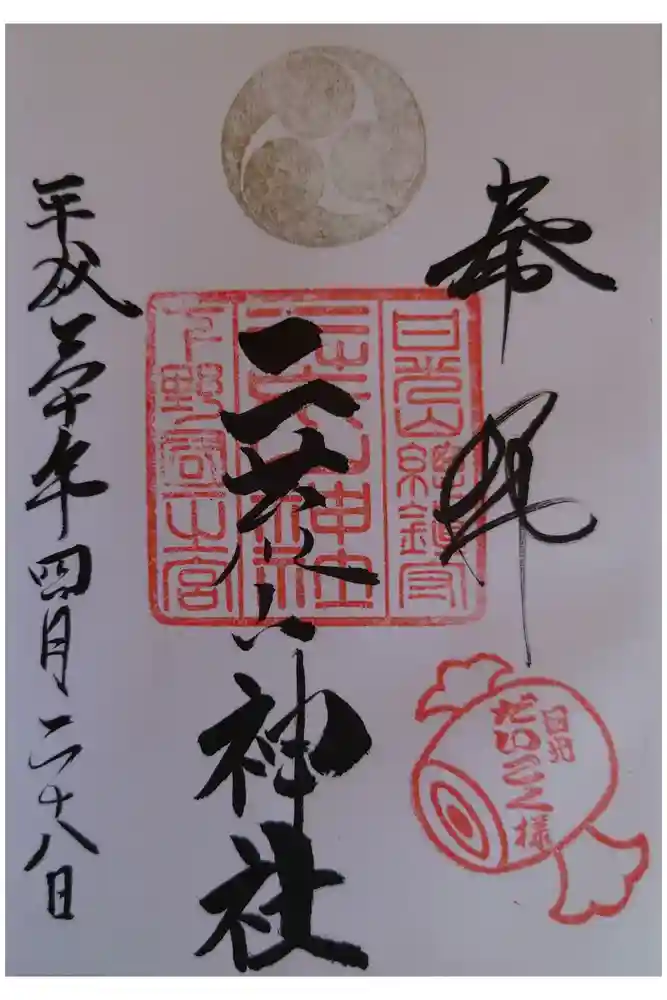 奉拝
日光山總鎮守
二荒山神社
下野國一之宮
二荒山神社
平成三十年四月二十八日
日光
だいこく様